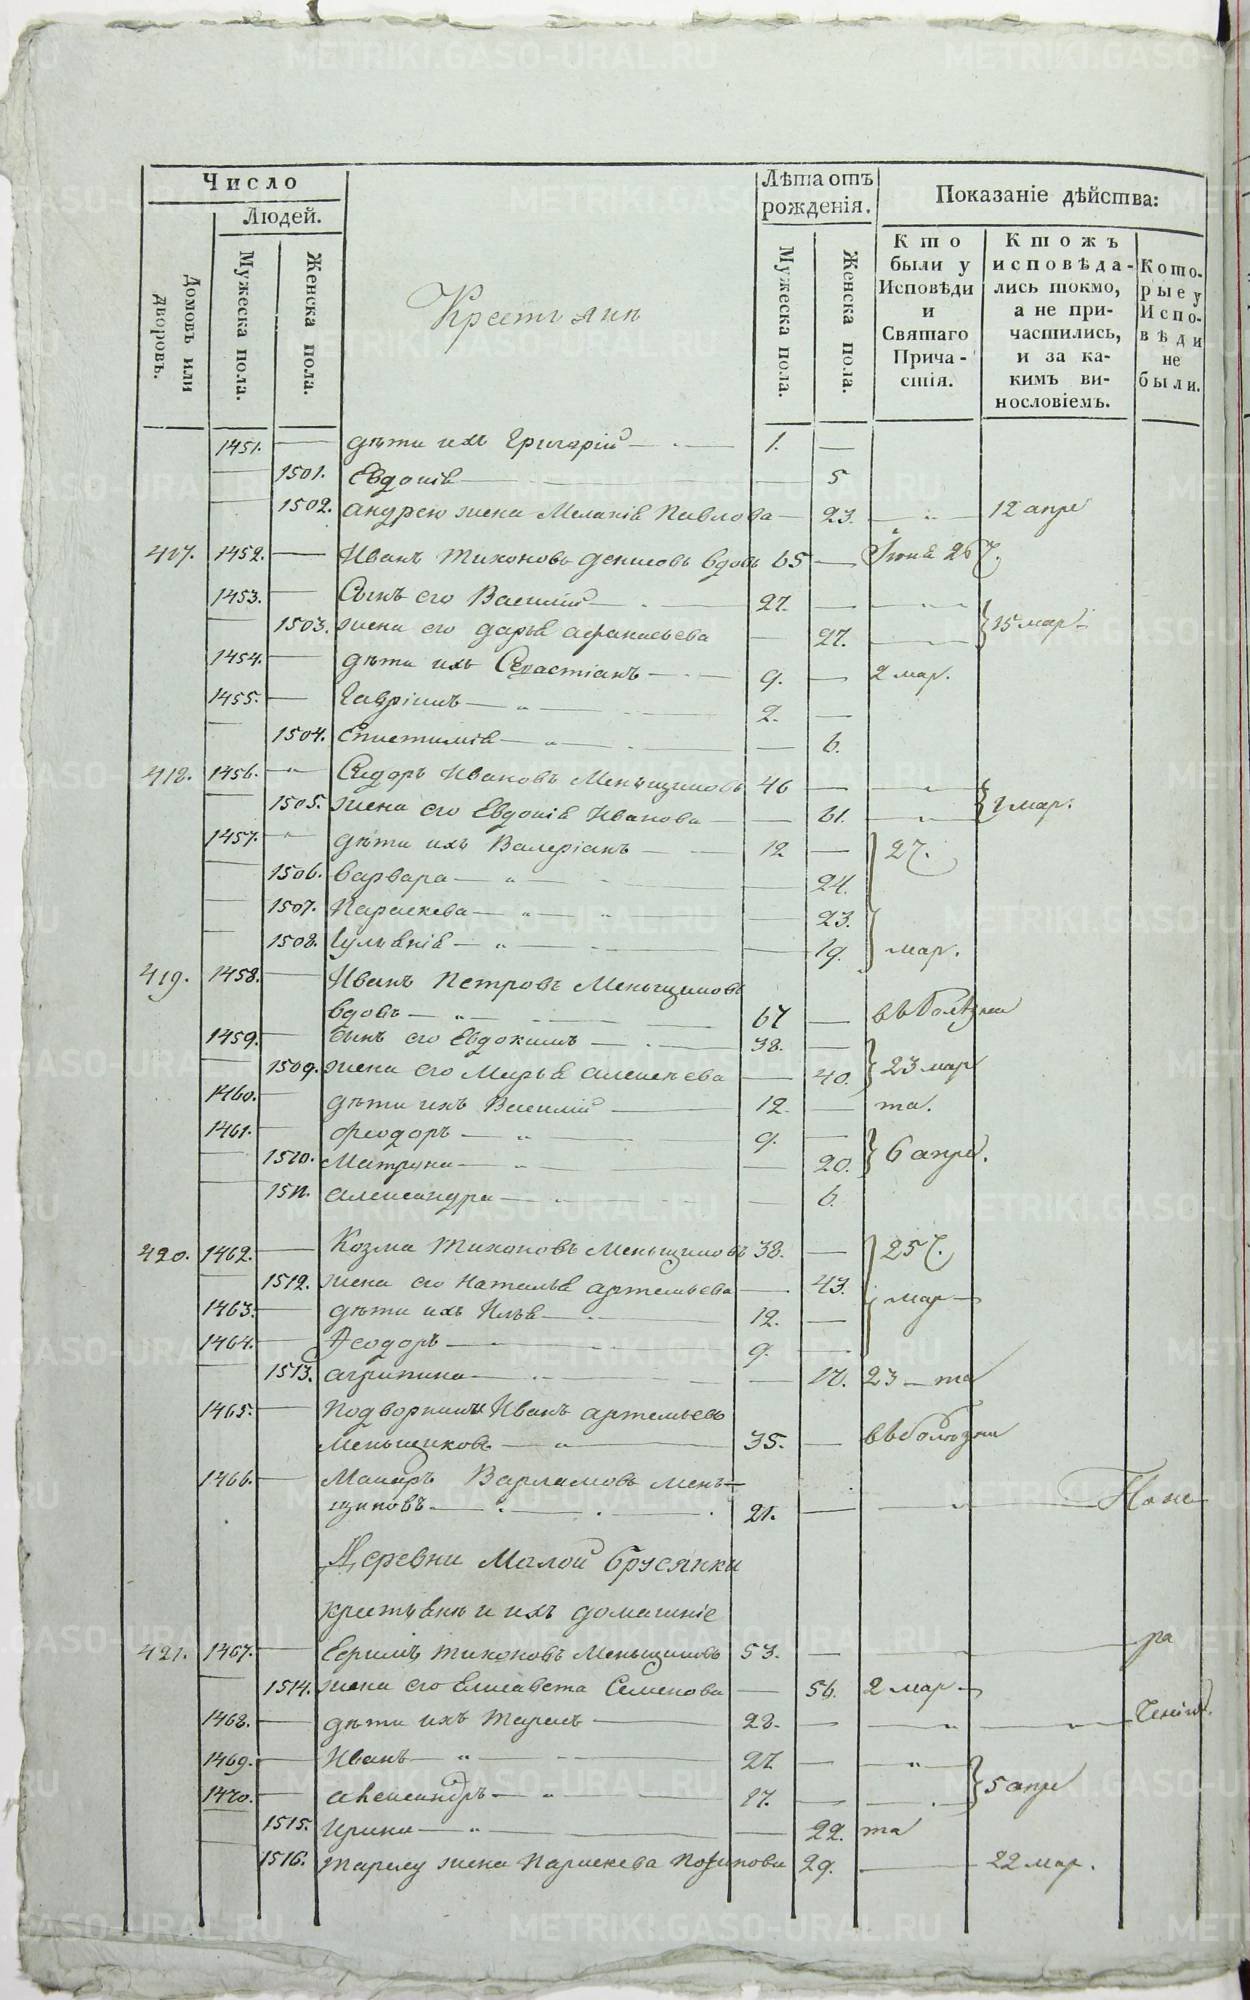 Число
Людей.
Домовъ или дворовъ.
Мужеска пола.
Женска пола.
Крестьянъ
Лѣта отъ рожденія.
Мужеска пола.
Женска пола.
Показаніе дѣйства:
Кто были у Исповѣди и Святаго Причастія.
Ктожъ исповѣдались токмо, а не причастились, и за какимъ винословіемъ.
Которые у Исповѣди не были.
1451. — дѣти ихъ Григорій — 1. —
1501. Евдокія — 5
1502. Андрею жена Меланія Павлова — 23. — 12 апре
417. 1452. — Иванъ Тихоновъ Денисовъ вдовъ 65 —
1453. — Сынъ его Василій — 27. —
1503. жена его Дарья Афанасьева — 27. — 15 мар
1454. — дѣти ихъ Севастіанъ — 9. — 2 мар.
1455. — Гавріилъ — 2. —
1504. Епистимія — 6.
418. 1456. — Сидоръ Ивановъ Меньщиковъ 46 —
1505. жена его Евдокія Иванова — 61. — 2 мар.
1457. дѣти ихъ Валеріанъ — 12 — 27.
1506. Варвара — 24.
1507. Параскева — 23.
1508. Іуліанія — 19. мар.
419. 1458. — Иванъ Петровъ Меньщиковъ
вдовъ — 67 — въ болѣзни
1459. — Сынъ его Евдокимъ — 38. —
1509. жена его Марья Алексѣева — 40. 23 мар
1460. дѣти ихъ Василій — 12. — та.
1461. — Феодоръ — 9. —
1510. Матрона — 20. 6 апре.
1511. Александра — 6.
420. 1462. — Козма Тихоновъ Меньщиковъ 38. — 25
1512. жена его Наталья Артемьева — 43. мар
1463. — дѣти ихъ Илья — 12. —
1464. — Феодоръ — 9. —
1513. Агрипина — 17. 23 — та
1465. — Подворникъ Иванъ Артемьевъ
Меньщиковъ — 35. — въ болѣзни
1466. — Макаръ Варламовъ Мень-
щиковъ — 21. —
Деревни Малой Брусянки
крестьяне и ихъ домашніе
421. 1467. — Ефимъ Тихоновъ Меньщиковъ 53. — ра
1514. жена его Елисавета Семенова — 56. 2 мар
1468. — дѣти ихъ Тарасъ — 28. —
1469. — Иванъ — 27 —
1470. — Александръ — 17. — 5 апре
1515. Ирина — 22. та
1516. Тарасу жена Параскева 29. — 22 мар.
METRIKI.GASO-URAL.RU